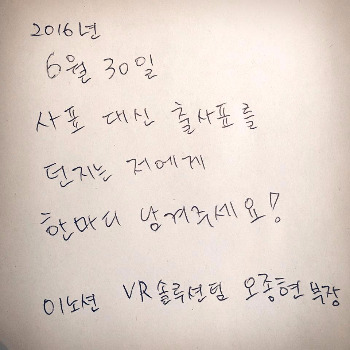 2016년
6월 30일
사표 대신 출사표를
던지는 저에게
한마디 남겨주세요!
이노션 VR솔루션팀 오종현 부장